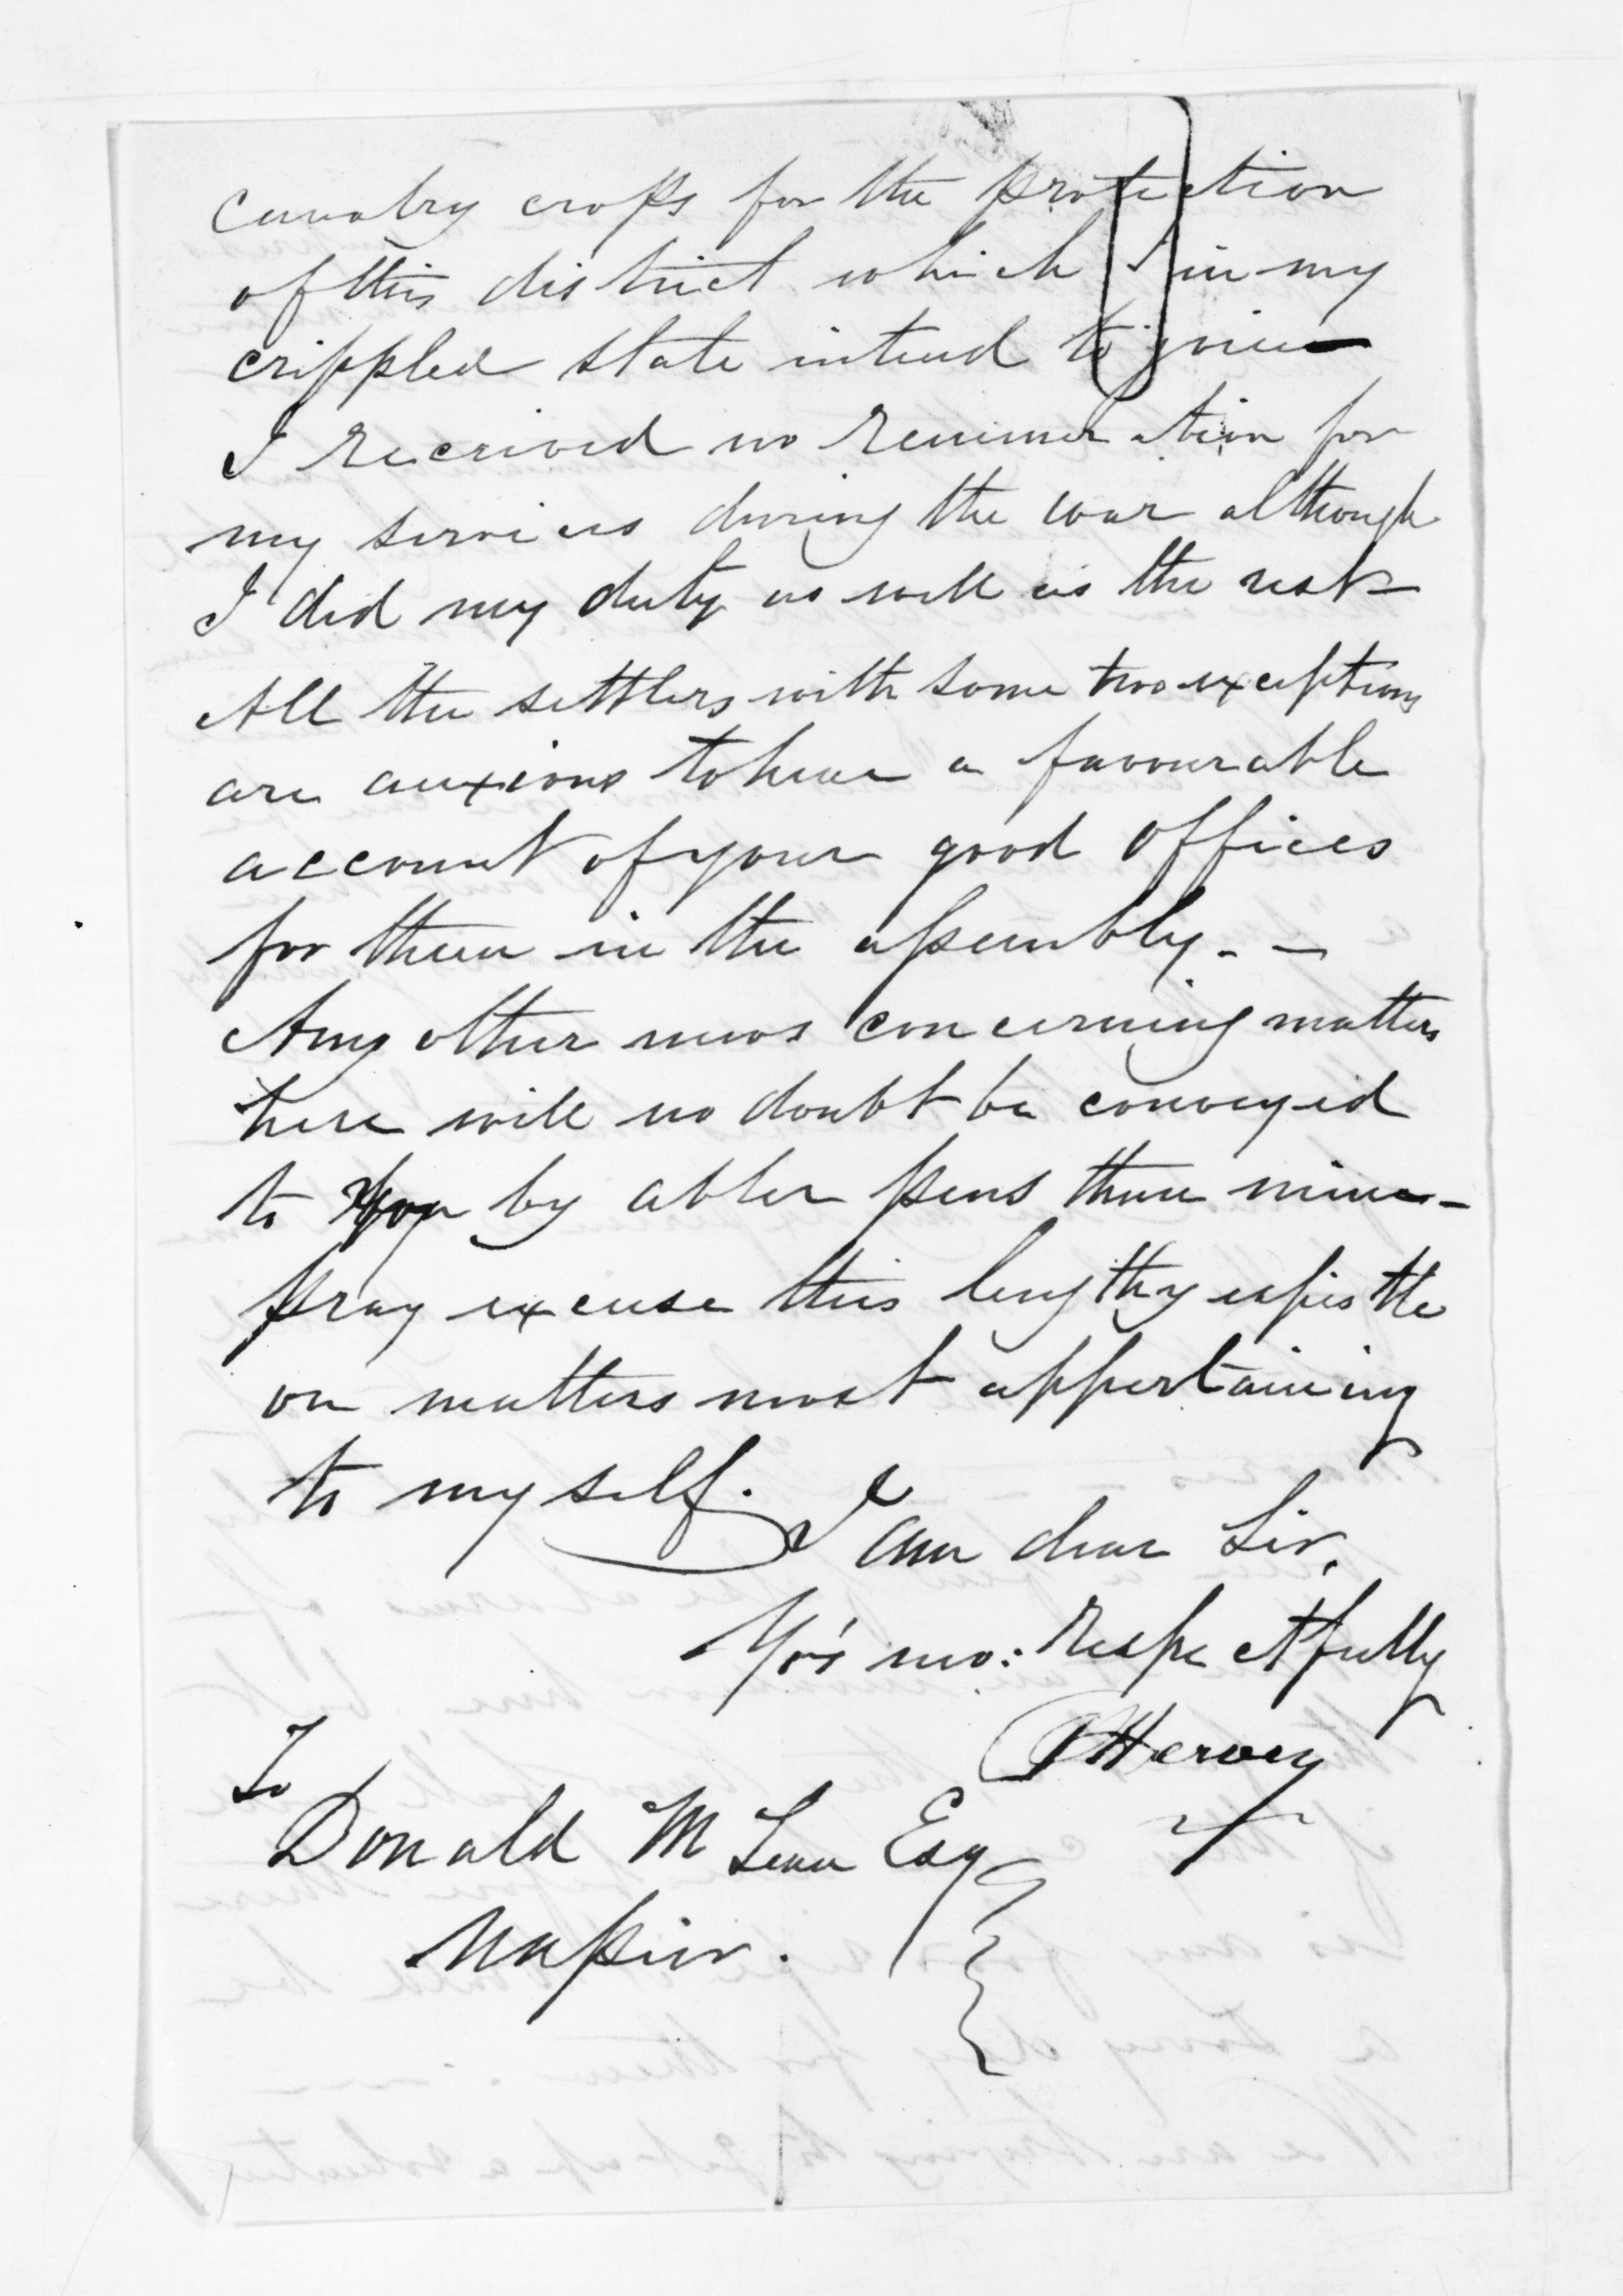 Cavalry crops for the protection
of this district which I in my
crippled state intend to join
I received no remuneration for
my services during the war although
I did my duty as well as the rest
All the settlers with some two exceptions
are anxious to hear a favourable
account of your good offices
for them in the assembly. —
Any other news concerning matters
here will no doubt be conveyed
to you by abler pens than mine —
pray excuse this lengthy epistle
on matters most appertaining
to myself.
I am dear Sir,
Yrs mo: respectfully
Hervey
To
Donald McLean Esq
Napier.